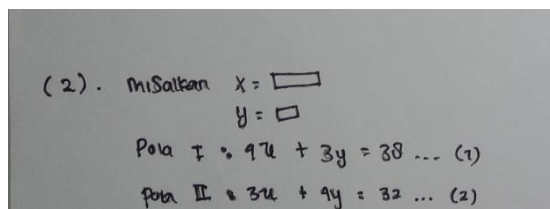 (2). Misalkan x = ▭
y = □
Pola I : 4x + 3y = 38 ... (1)
Pola II : 3x + 4y = 32 ... (2)